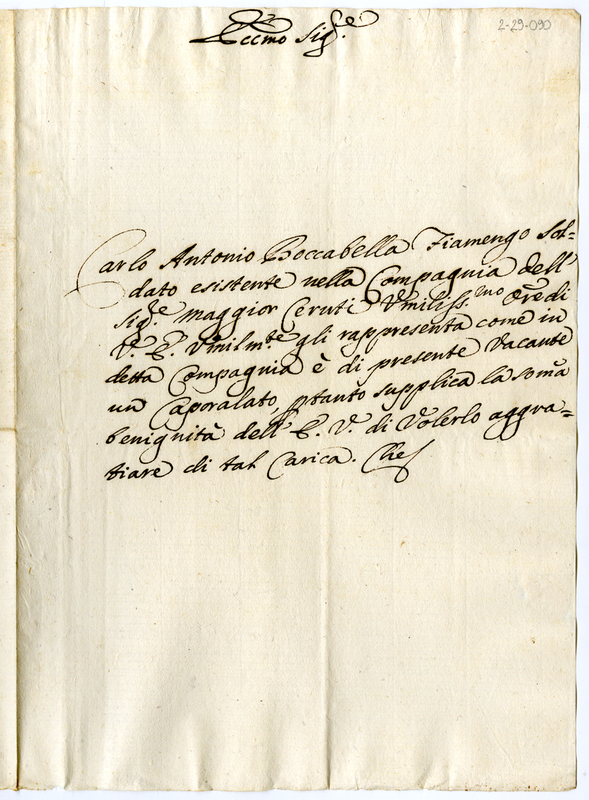 2-29-090
Eccmo Sig.re
Carlo Antonio Boccabella Fiamengo Sol=
dato esistente nella Compagnia dell
Sig.e Maggior Ceruti Vmiliss.mo Òre di
V. E. Vmilm.te gli rappresenta come in
detta Compagnia è di presente Vacante
un Caporalato, ptanto supplica la soma
benignità dell' E. V. di Volerlo aggra=
tiare di tal Carica. Che